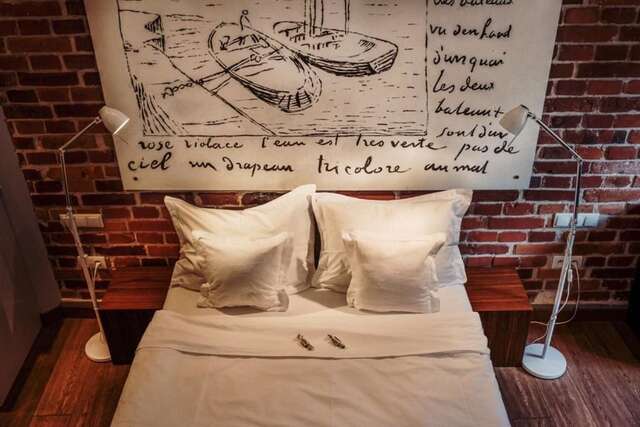 les bateaux
vu den haut
d'un quai
les deux
bateaux
sont d'un
rose violacé l'eau est très verte pas de
ciel un drapeau tricolore au mat